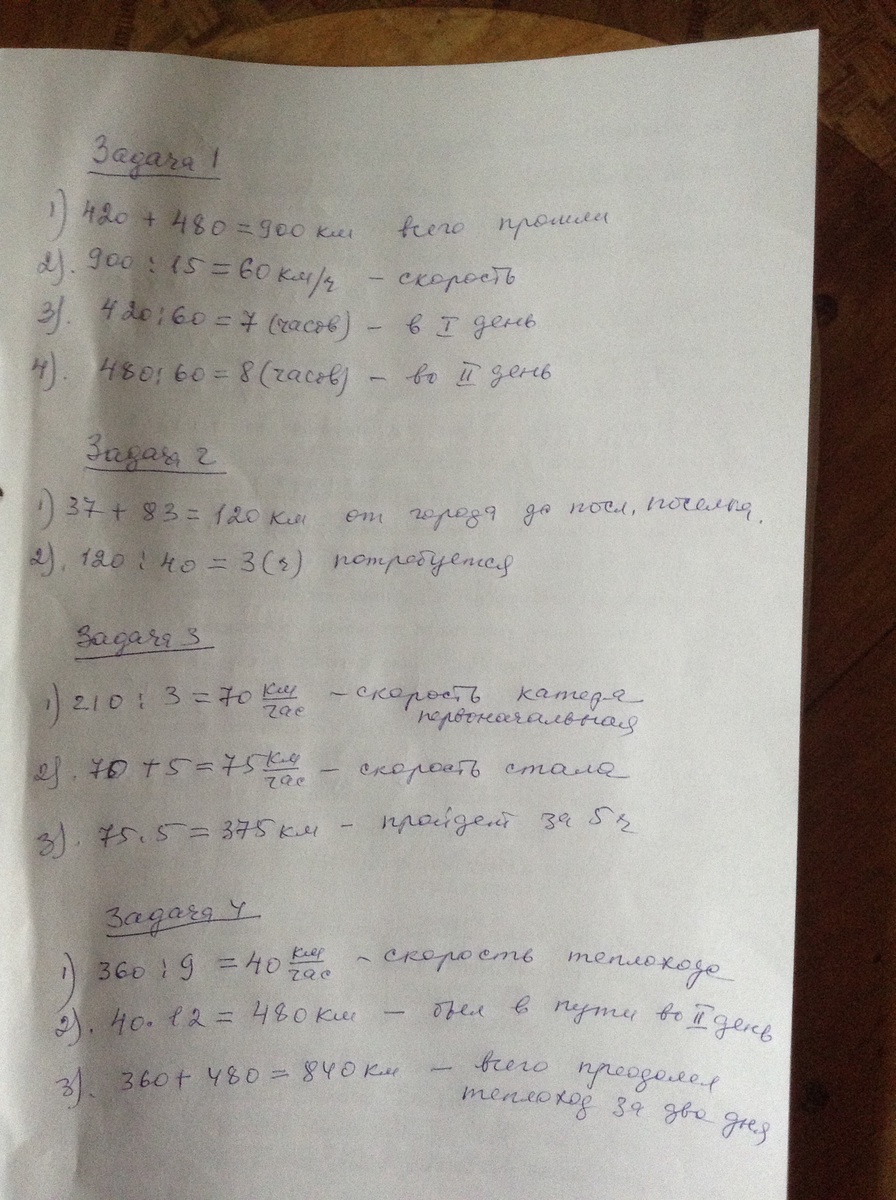 Задача 1
1) 420 + 480 = 900 км всего прошли
2). 900 : 15 = 60 км/ч – скорость
3). 420 : 60 = 7 (часов) – в I день
4). 480 : 60 = 8 (часов) – во II день
Задача 2
1) 37 + 83 = 120 км от города до посл. поселка.
2). 120 : 40 = 3 (ч) потребуется
Задача 3
1) 210 : 3 = 70 км/час – скорость катера
первоначальная
2). 70 + 5 = 75 км/час – скорость стала
3). 75 . 5 = 375 км – пройдет за 5 ч
Задача 4
1) 360 : 9 = 40 км/час – скорость теплохода
2). 40 . 12 = 480 км – был в пути во II день
3). 360 + 480 = 840 км – всего преодолел
теплоход за два дня